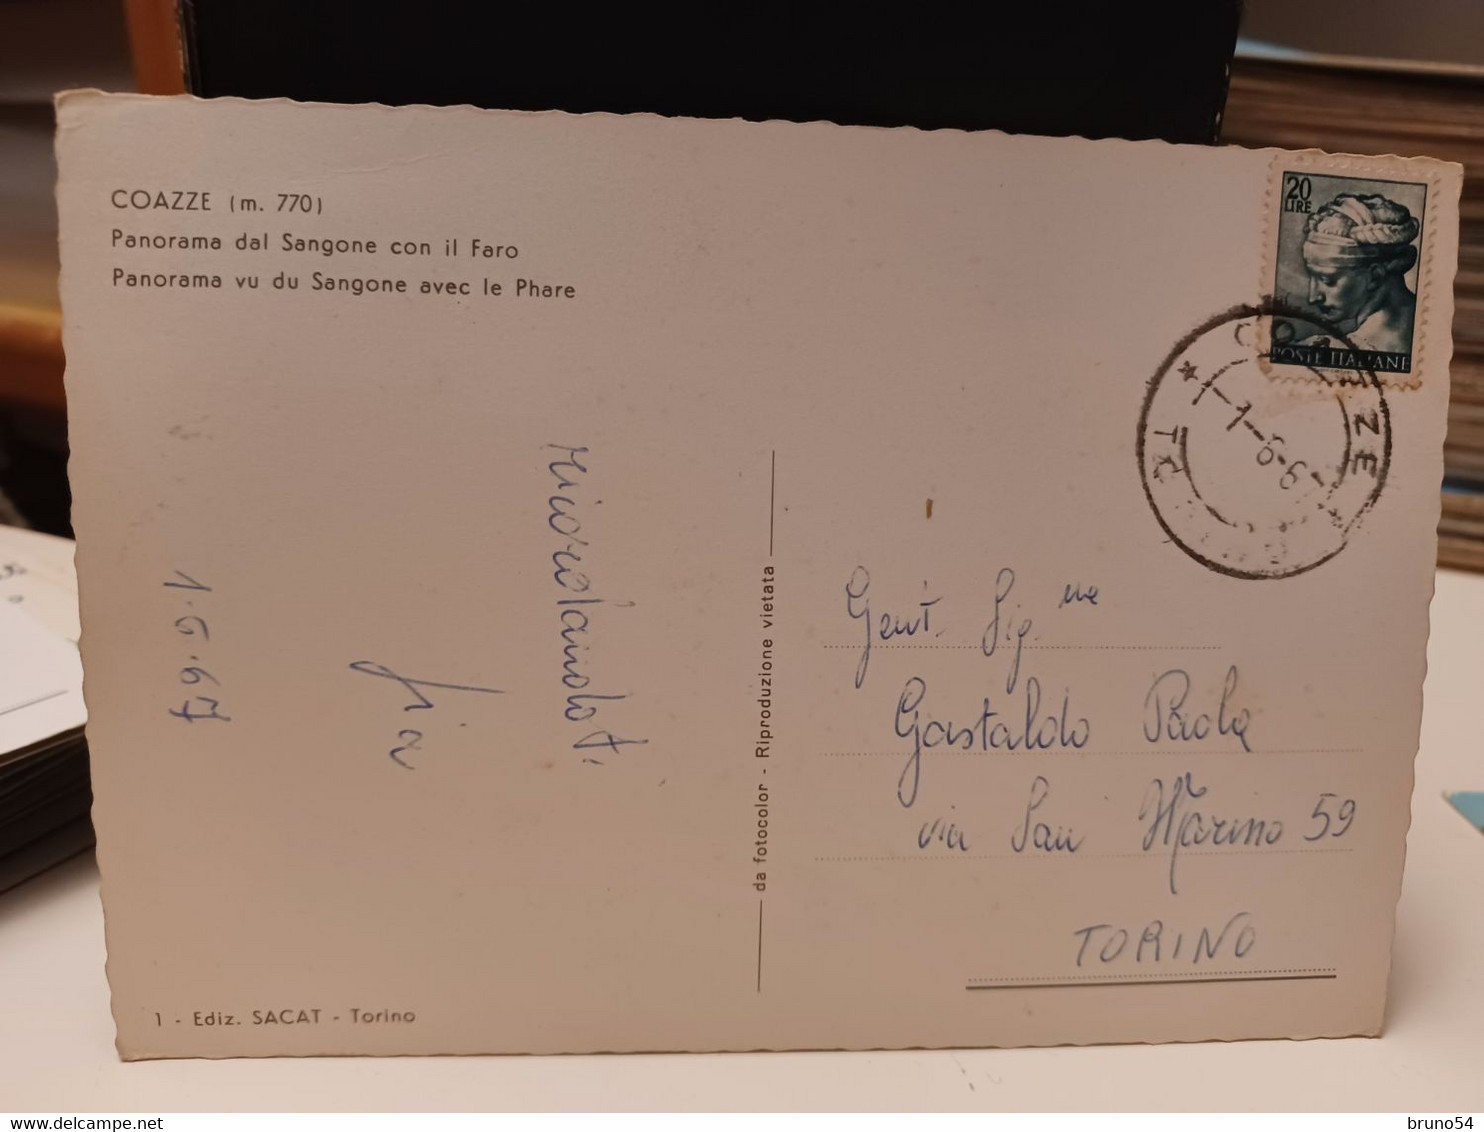 COAZZE (m. 770)
Panorama dal Sangone con il Faro
Panorama vu du Sangone avec le Phare
20
LIRE
POSTE ITALIANE
COAZZE
1-6-6
TO
Ricordandoti
Pia
1.6.67
da fotocolor - Riproduzione vietata
Gent. Sig.na
Gastaldo Paola
via San Marino 59
TORINO
1 - Ediz. SACAT - Torino
bruno54